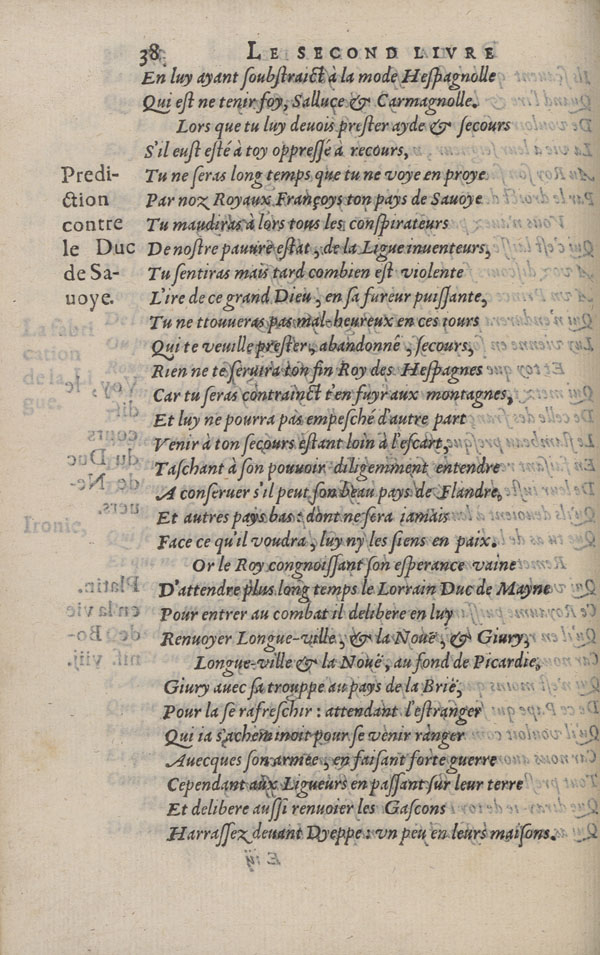 38 LE SECOND LIVRE
En luy ayant soubstraict à la mode Hespagnolle
Qui est ne tenir foy, Salluce & Carmagnolle.
Lors que tu luy devois prester ayde & secours
S'il eust esté à toy oppressé à recours,
Tu ne seras long temps que tu ne voye en proye
Par noz Royaux Françoys ton pays de Sauoye
Tu maudiras à lors tous les conspirateurs
De nostre pauure estat, de la Ligue inuenteurs,
Tu sentiras mais tard combien est violente
L'ire de ce grand Dieu, en sa fureur puissante,
Tu ne ttouueras pas mal-heureux en ces iours
Qui te veuille prester, abandonné, secours,
Rien ne te seruira ton fin Roy des Hespagnes
Car tu seras contrainct t'en fuyr aux montagnes,
Et luy ne pourra pas empesché d'autre part
Venir à ton secours estant loin à l'escart,
Taschant à son pouuoir diligemment entendre
A conseruer s'il peut son beau pays de Flandre,
Et autres pays bas: dont ne sera iamais
Face ce qu'il voudra, luy ny les siens en paix.
Or le Roy congnoissant son esperance vaine
D'attendre plus long temps le Lorrain Duc de Mayne
Pour entrer au combat il delibere en luy
Renuoyer Longue-ville, & la Nouë, & Giury,
Longue-ville & la Nouë, au fond de Picardie,
Giury auec sa trouppe au pays de la Brië,
Pour la se rafreschir: attendant l'estranger
Qui ia s'acheminoit pour se venir ranger
Auecques son armée, en faisant forte guerre
Cependant aux Ligueurs en passant sur leur terre
Et delibere aussi renuoier les Gascons
Harrassez deuant Dyeppe: vn peu en leurs maisons.
Predi-
ction
contre
le Duc
de Sa-
uoye.